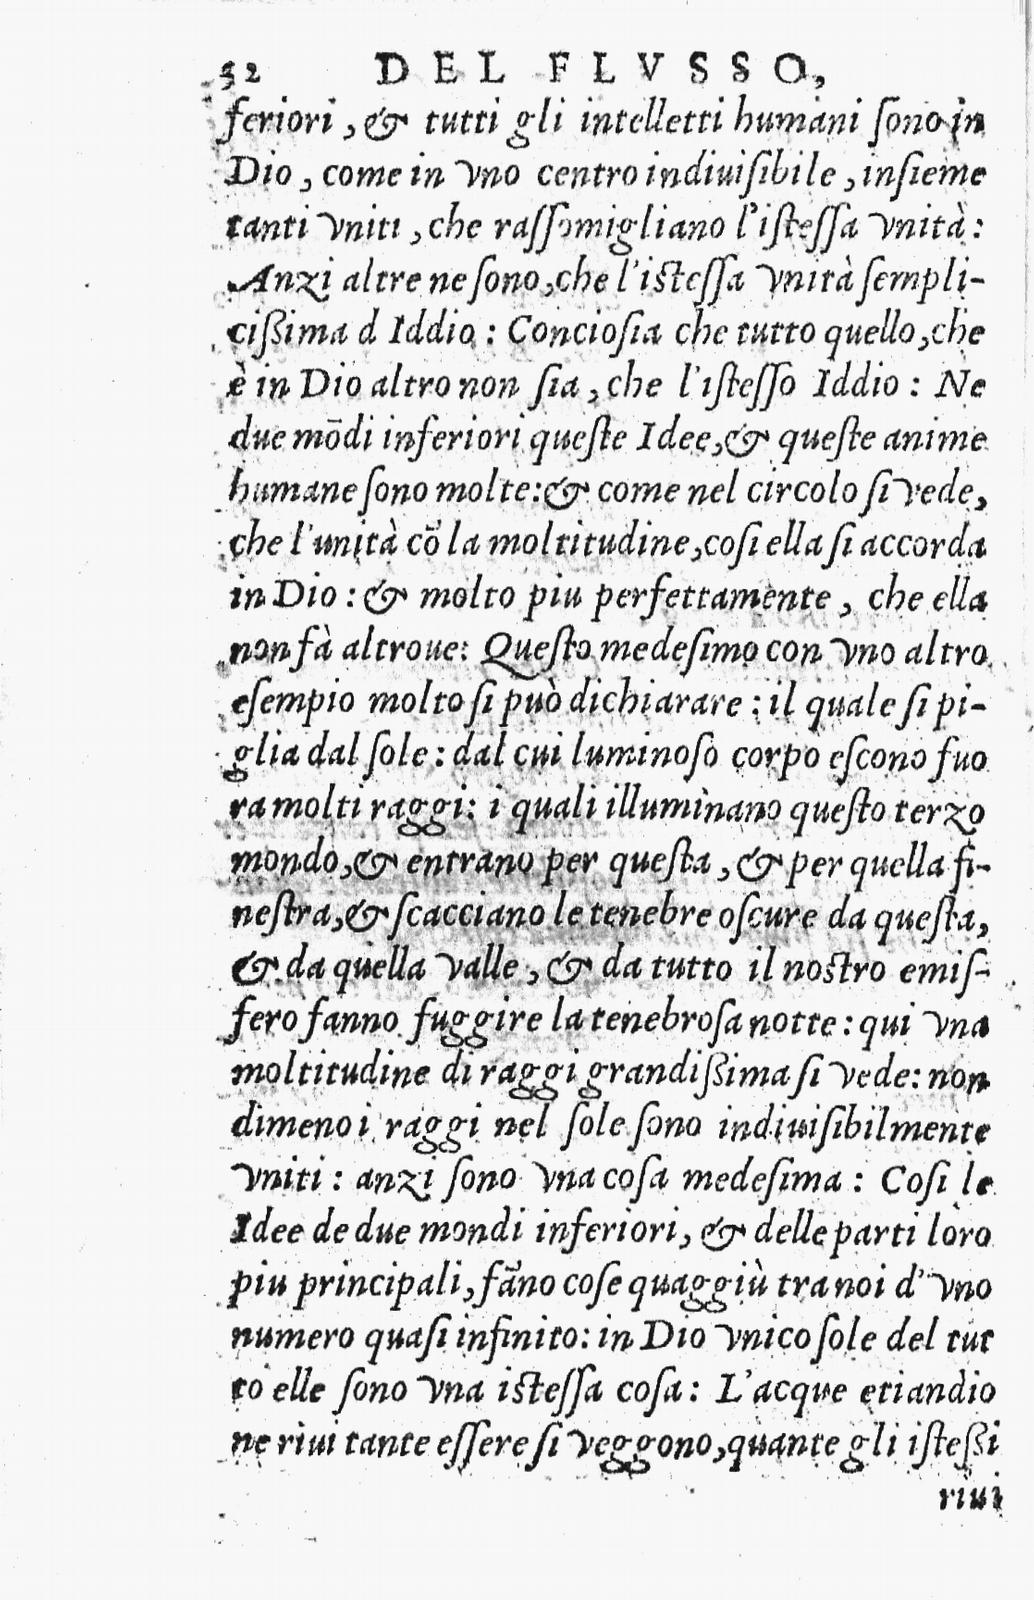 52 DEL FLVSSO,
feriori, & tutti gli intelletti humani ſono in
Dio, come in vno centro indiuiſibile, inſieme
tanti vniti, che raſſomigliano l'iſteſſa vnità:
Anzi altre ne ſono, che l'iſteſſa vnità ſempli-
cißima d Iddio: Concioſia che tutto quello, che
è in Dio altro non ſia, che l'iſteſſo Iddio: Ne
due mōdi inferiori queſte Idee, & queſte anime
humane ſono molte: & come nel circolo ſi vede,
che l'unità cō la moltitudine, coſi ella ſi accorda
in Dio: & molto piu perfettamente, che ella
non fà altroue: Queſto medeſimo con vno altro
eſempio molto ſi può dichiarare: il quale ſi pi-
glia dal ſole: dal cui luminoſo corpo eſcono fuo
ra molti raggi: i quali illuminano queſto terzo
mondo, & entrano per queſta, & per quella fi-
neſtra, & ſcacciano le tenebre oſcure da queſta,
& da quella valle, & da tutto il noſtro emiſ-
fero fanno fuggire la tenebroſa notte: qui vna
moltitudine di raggi grandißima ſi vede: non
dimeno i raggi nel ſole ſono indiuiſibilmente
vniti: anzi ſono vna coſa medeſima: Coſi le
Idee de due mondi inferiori, & delle parti loro
piu principali, fāno coſe quaggiù tra noi d' vno
numero quaſi infinito: in Dio vnico ſole del tut
to elle ſono vna iſteſſa coſa: L'acque etiandio
ne riui tante eſſere ſi veggono, quante gli iſteßi
riui